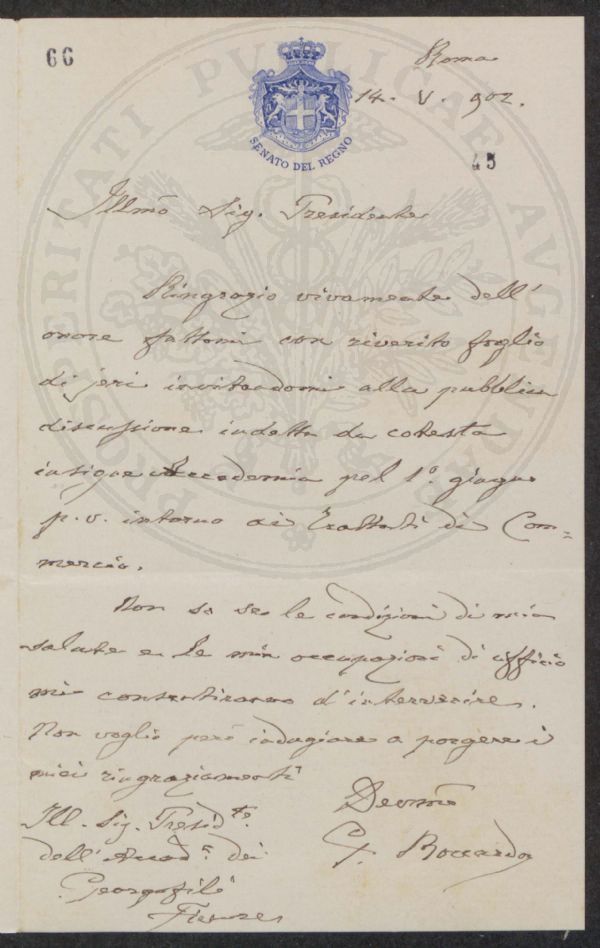 66
Roma
14. V. 902.
SENATO DEL REGNO
45
PROSPERITATI PVBLICAE AVGENDAE
Illmo Sig. Presidente
Ringrazio vivamente dell'
onore fattomi con riverito foglio
di jeri invitandomi alla pubblica
discussione indetta da cotesta
insigne Accademia pel 1º. giugno
p. v. intorno ai Trattati di Com=
mercio.
Non so se le condizioni di mia
salute e le mie occupazioni di ufficio
mi consentiranno d'intervenire.
Non voglio però indugiare a porgere i
miei ringraziamenti
Devmo
G. Boccardo
Ill. Sig. Presidte.
dell'Accada. dei
Georgofili
Firenze